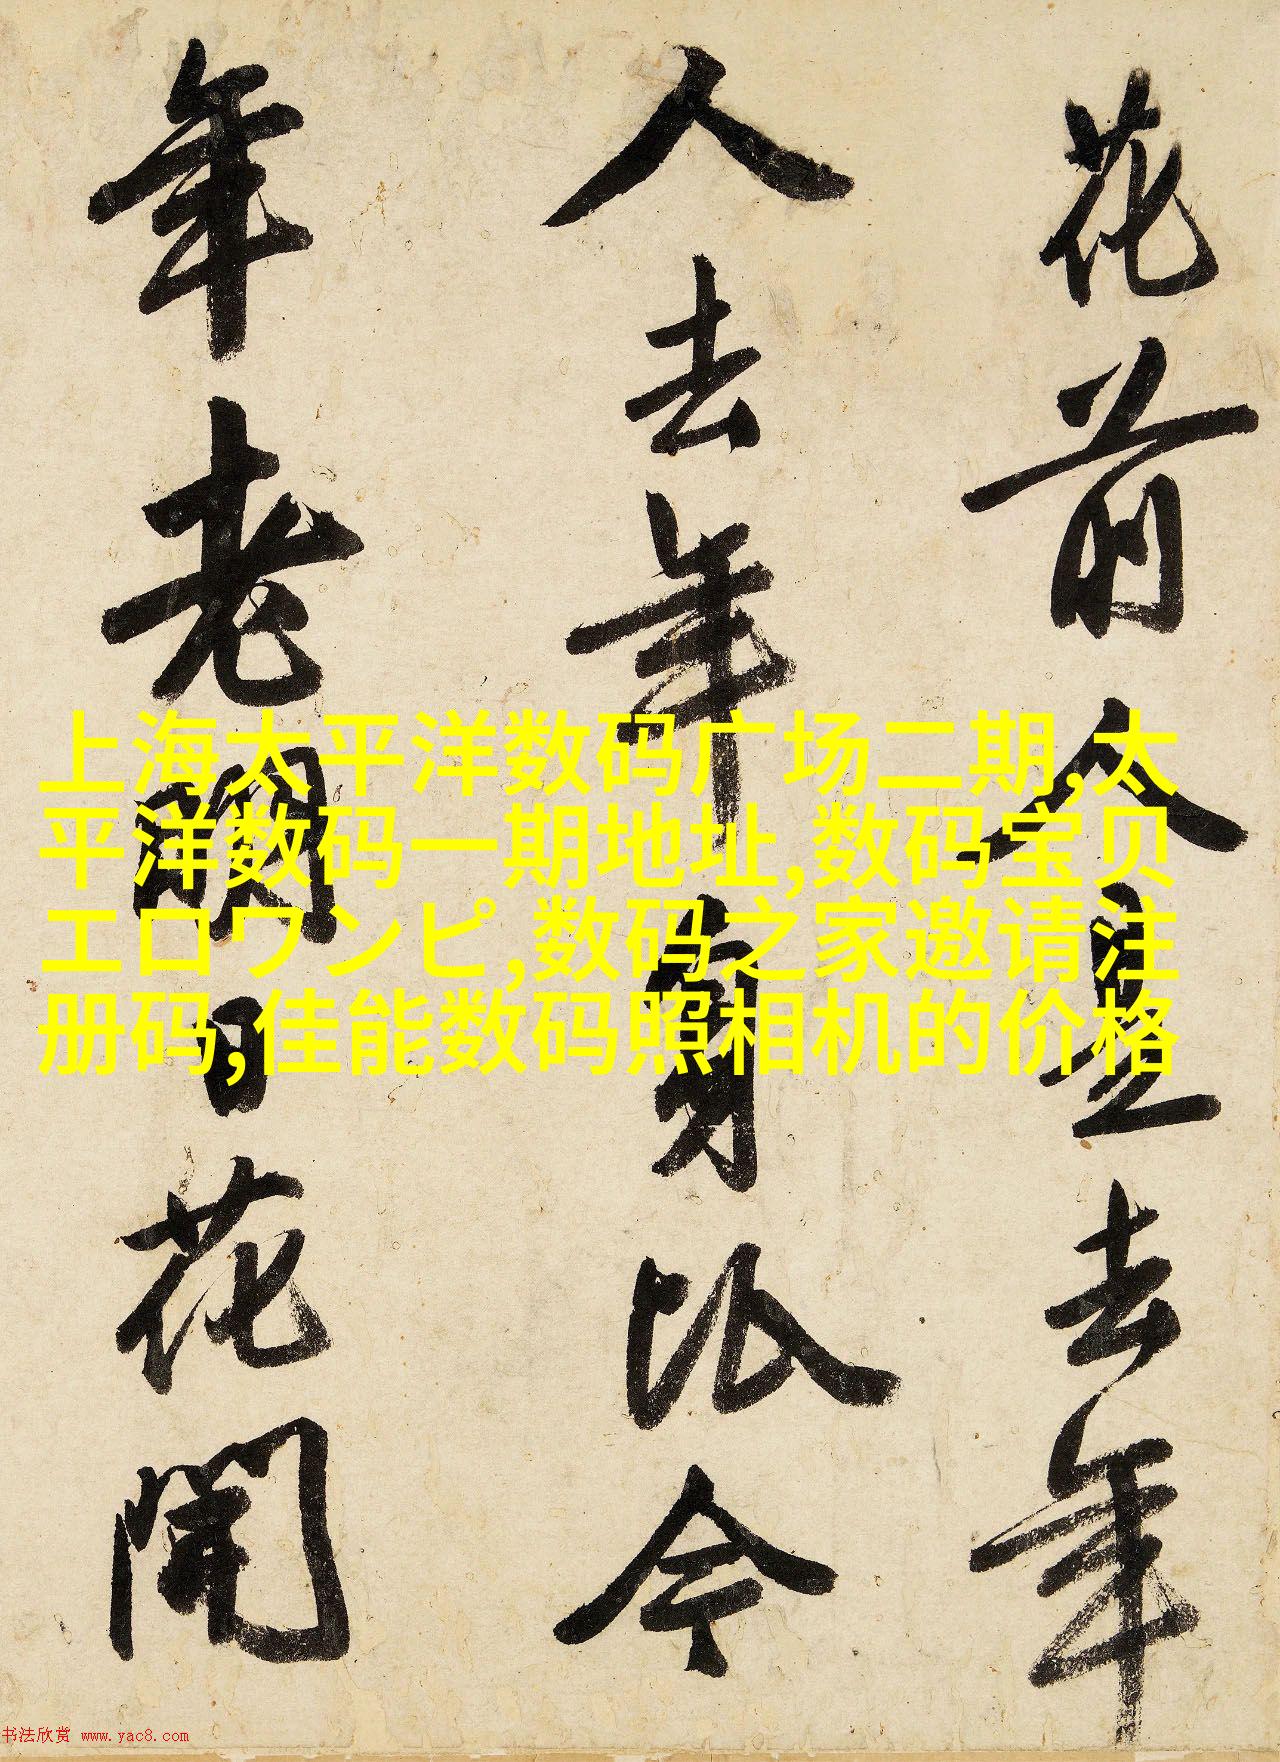 花前人是去年
人去年身比今
年老明日花開
上海太平洋数码广场二期,太
平洋数码一期地址,数码宝贝
エロワンピ,数码之家邀请注
册码,佳能数码照相机的价格
书法欣赏 www.yac8.com